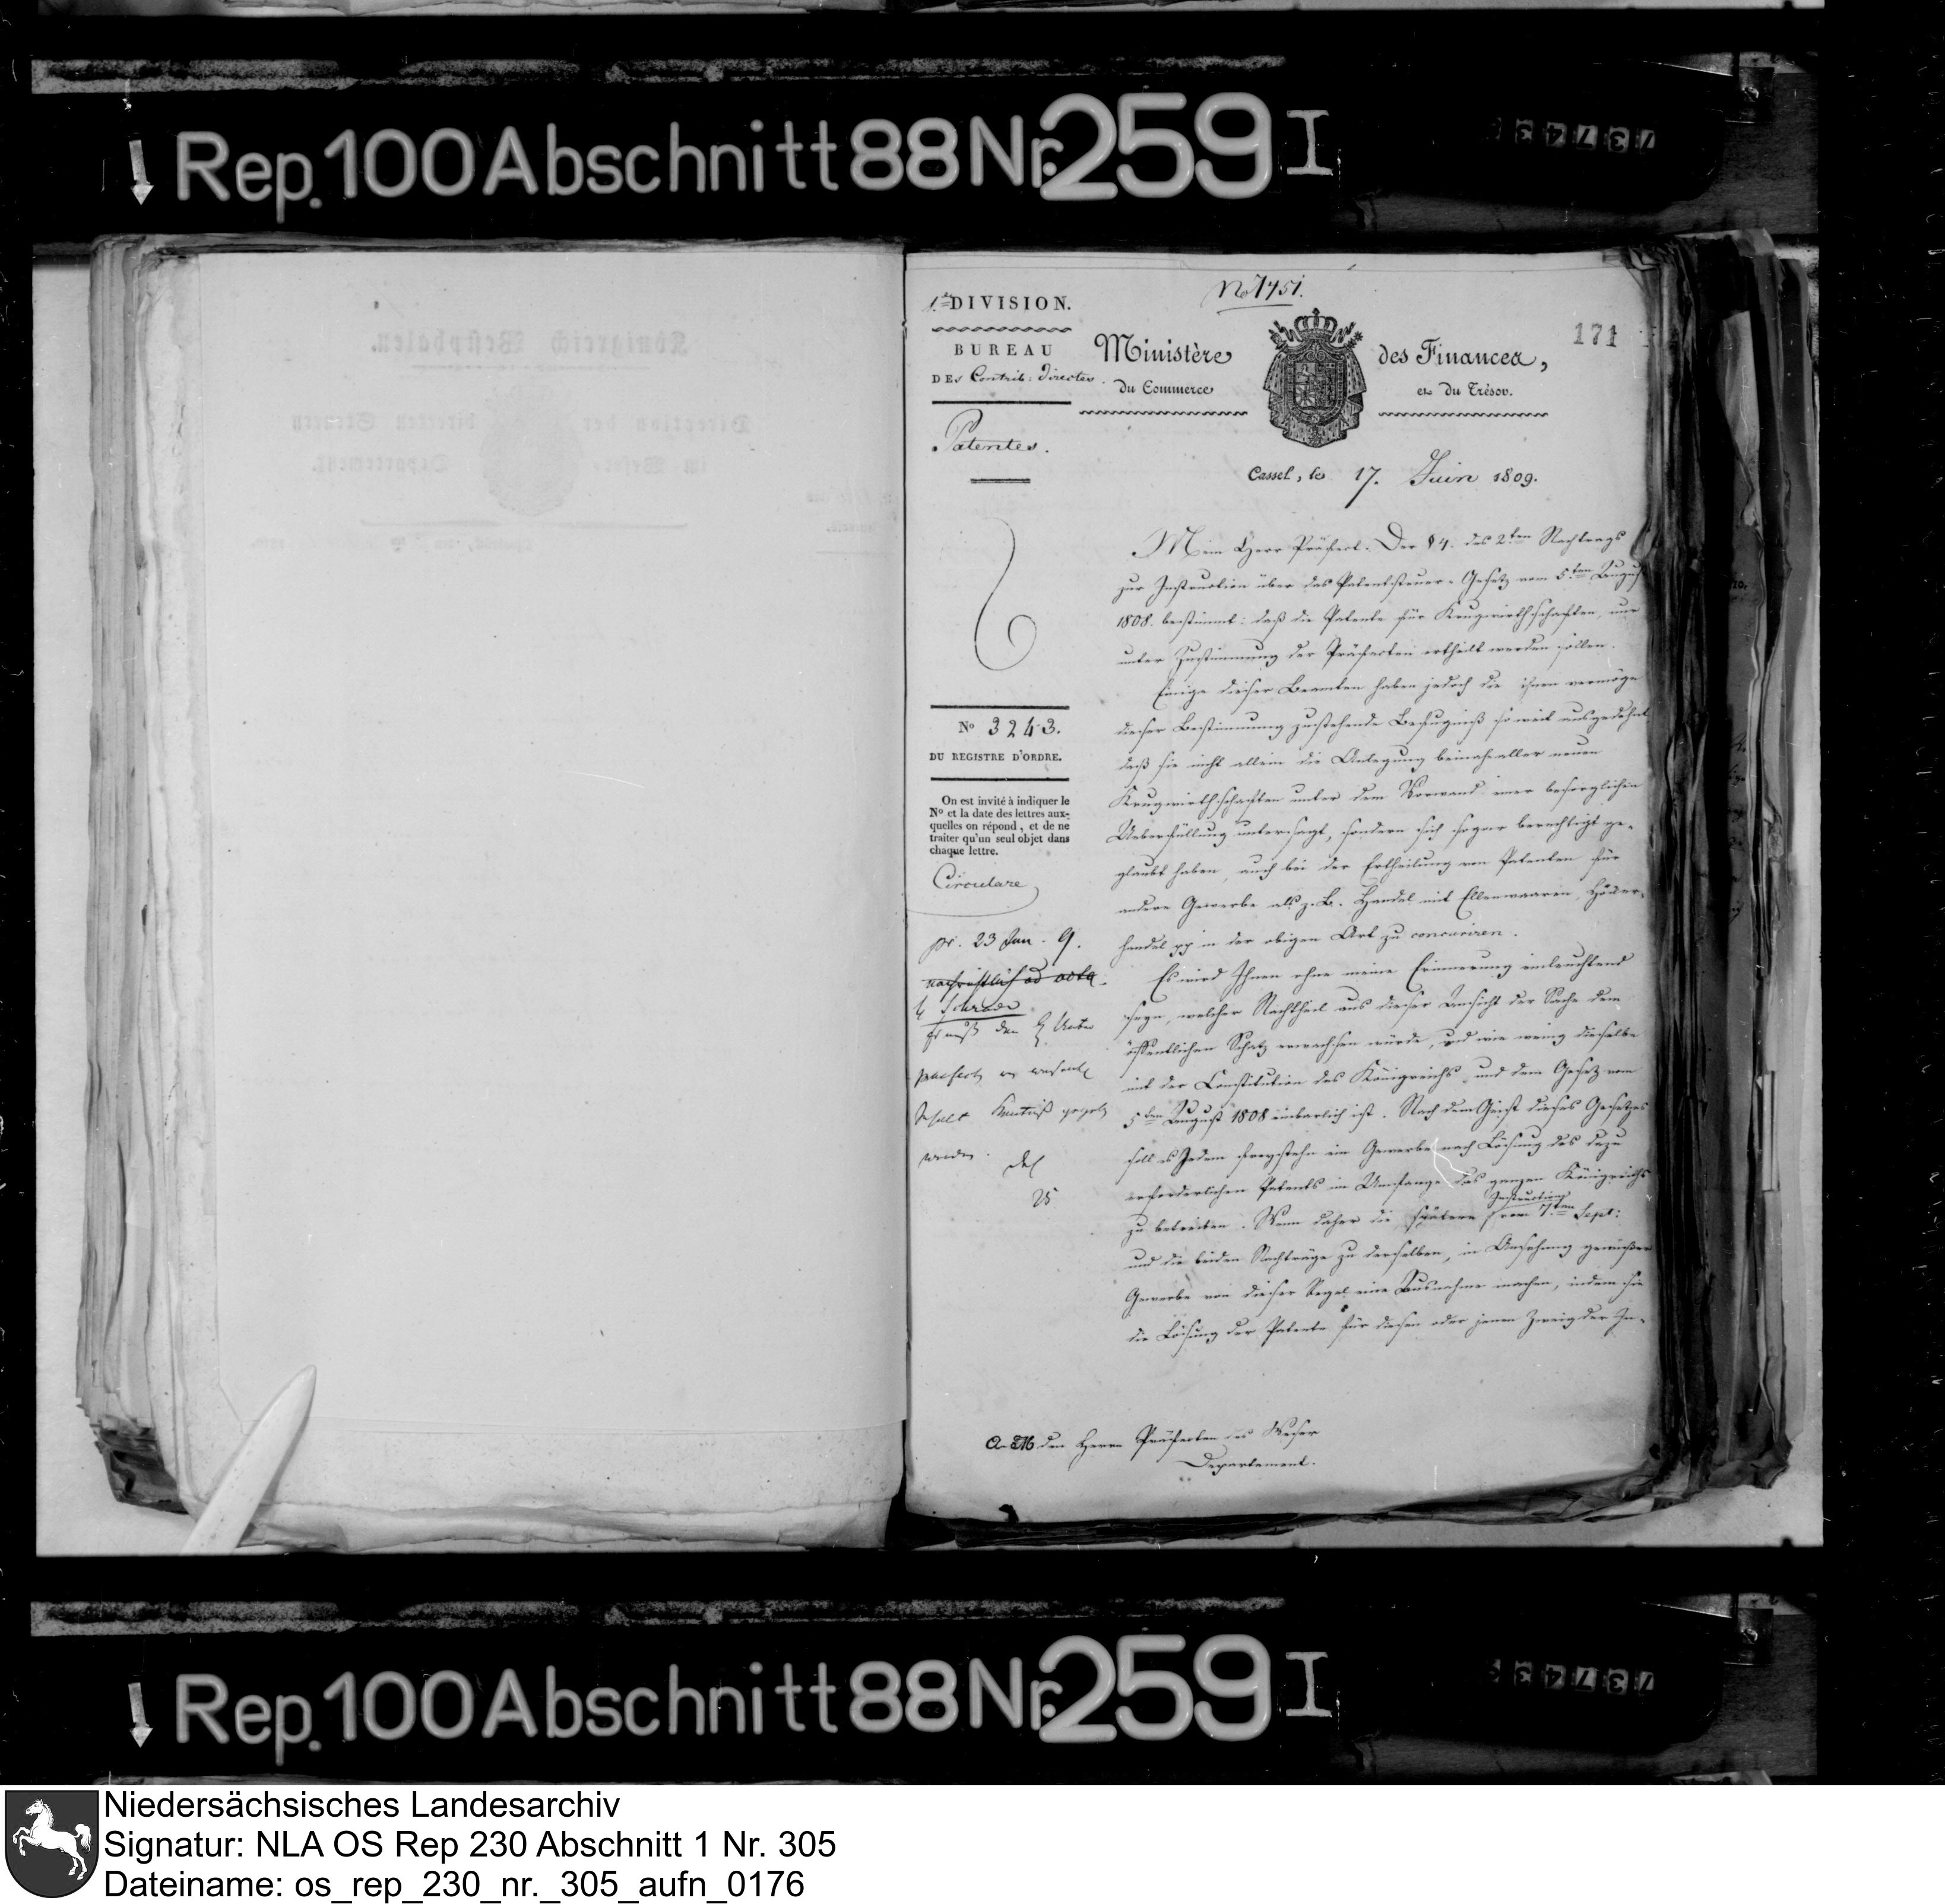 Rep. 100 Abschnitt 88 Nr. 259 I
No 1451.
171
1.re DIVISION.
BUREAU
DES Contrib: directes.
Patentes.
Ministère des Finances,
du Commerce et du Trésor.
Cassel, le 17. Juin 1809.
No 3243.
DU REGISTRE D'ORDRE.
On est invité à indiquer le
No et la date des lettres aux-
quelles on répond, et de ne
traiter qu'un seul objet dans
chaque lettre.
Circulaire
pr. 23 Jun. 9.
nachrichtlich ad acta.
Es muß den
Kentniß gegeben
werden.
25
Mein Herr Präfect. Der § 4. des 2ten Nachtrags
zur Instruction über das Patentsteuer-Gesetz vom 5ten August
1808. bestimmt: daß die Patente für Krugwirthschaften, nur
unter Zustimmung der Präfecten ertheilt werden sollen.
Einige dieser Beamten haben jedoch die ihnen vermöge
dieser Bestimmung zustehende Befugniß so weit ausgedehnt
daß sie nicht allein die Anlegung beinahe aller neuen
Krugwirthschaften unter dem Vorwand einer besorglichen
Ueberfüllung untersagt, sondern sich sogar berechtigt ge-
glaubt haben, auch bei der Ertheilung von Patenten für
andere Gewerbe als z. B. Handel mit Ellenwaaren, Höcker-
handel pp in der obigen Art zu concuriren.
Es wird Ihnen ohne meine Erinnerung einleuchtend
seyn, welcher Nachtheil aus dieser Ansicht der Sache dem
öffentlichen Schatz erwachsen würde, und wie wenig dieselbe
mit der Constitution des Königreichs, und dem Gesetz vom
5ten August 1808 einbarlich ist. Nach dem Geist dieses Gesetzes
soll es Jedem freystehn ein Gewerbe nach Lösung des dazu
erforderlichen Patents im Umfange des ganzen Königreichs
zu betreiben. Wenn daher die spätere Instruction vom 7ten Sept:
und die beiden Nachträge zu derselben, in Ansehung gewisser
Gewerbe von dieser Regel eine Ausnahme machen, indem sie
die Lösung der Patente für diesen oder jenen Zweig der In-
An den Herrn Präfecten des Weser
Departement.
Rep. 100 Abschnitt 88 Nr. 259 I
Niedersächsisches Landesarchiv
Signatur: NLA OS Rep 230 Abschnitt 1 Nr. 305
Dateiname: os_rep_230_nr._305_aufn_0176